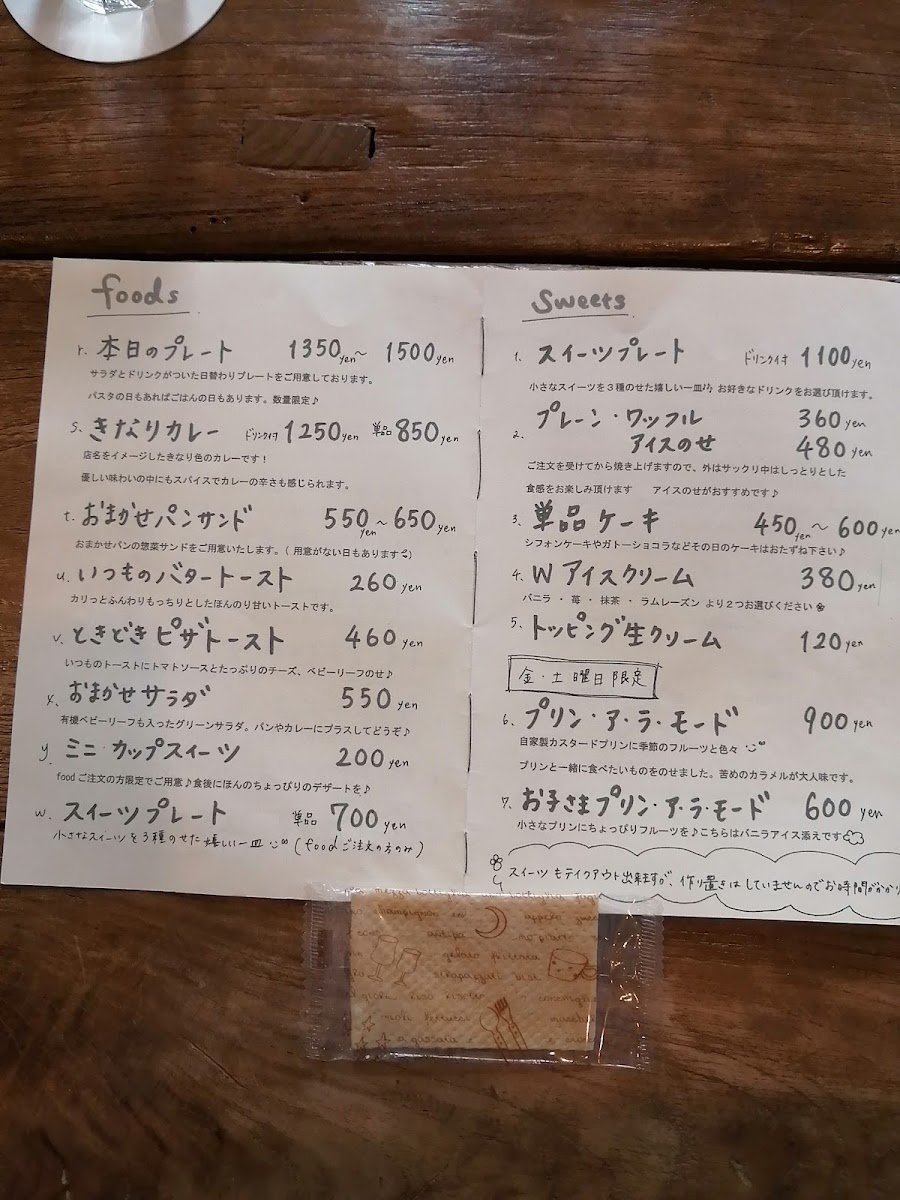 foods
r. 本日のプレート 1350yen〜 1500yen
サラダとドリンクがついた日替わりプレートをご用意しております。
パスタの日もあればごはんの日もあります。数量限定♪
s. きなりカレー ドリンク付 1250yen 単品 850yen
店名をイメージしたきなり色のカレーです！
優しい味わいの中にもスパイスでカレーの辛さも感じられます。
t. おまかせパンサンド 550yen〜650yen
おまかせパンの惣菜サンドをご用意いたします。( 用意がない日もあります)
u. いつものバタートースト 260yen
カリっとふんわりもっちりとしたほんのり甘いトーストです。
v. ときどきピザトースト 460yen
いつものトーストにトマトソースとたっぷりのチーズ、ベビーリーフのせ♪
x. おまかせサラダ 550yen
有機ベビーリーフも入ったグリーンサラダ。パンやカレーにプラスしてどうぞ♪
y. ミニ・カップスイーツ 200yen
food ご注文の方限定でご用意♪食後にほんのちょっぴりのデザートを♪
w. スイーツプレート 単品 700yen
小さなスイーツを3種のせた嬉しい一皿 (foodご注文の方のみ)
Sweets
1. スイーツプレート ドリンク付 1100yen
小さなスイーツを３種のせた嬉しい一皿♪ お好きなドリンクをお選び頂けます。
2. プレーン・ワッフル 360yen
アイスのせ 480yen
ご注文を受けてから焼き上げますので、外はサックリ中はしっとりとした
食感をお楽しみ頂けます アイスのせがおすすめです♪
3. 単品ケーキ 450yen〜600yen
シフォンケーキやガトーショコラなどその日のケーキはおたずね下さい♪
4. W アイスクリーム 380yen
バニラ ・ 苺 ・ 抹茶 ・ ラムレーズン より２つお選びください
5. トッピング生クリーム 120yen
金・土曜日限定
6. プリン・ア・ラ・モード 900yen
自家製カスタードプリンに季節のフルーツと色々
プリンと一緒に食べたいものをのせました。苦めのカラメルが大人味です。
7. お子さまプリン・ア・ラ・モード 600yen
小さなプリンにちょっぴりフルーツを♪こちらはバニラアイス添えです
スイーツもテイクアウト出来ますが、作り置きはしていませんのでお時間がかかり